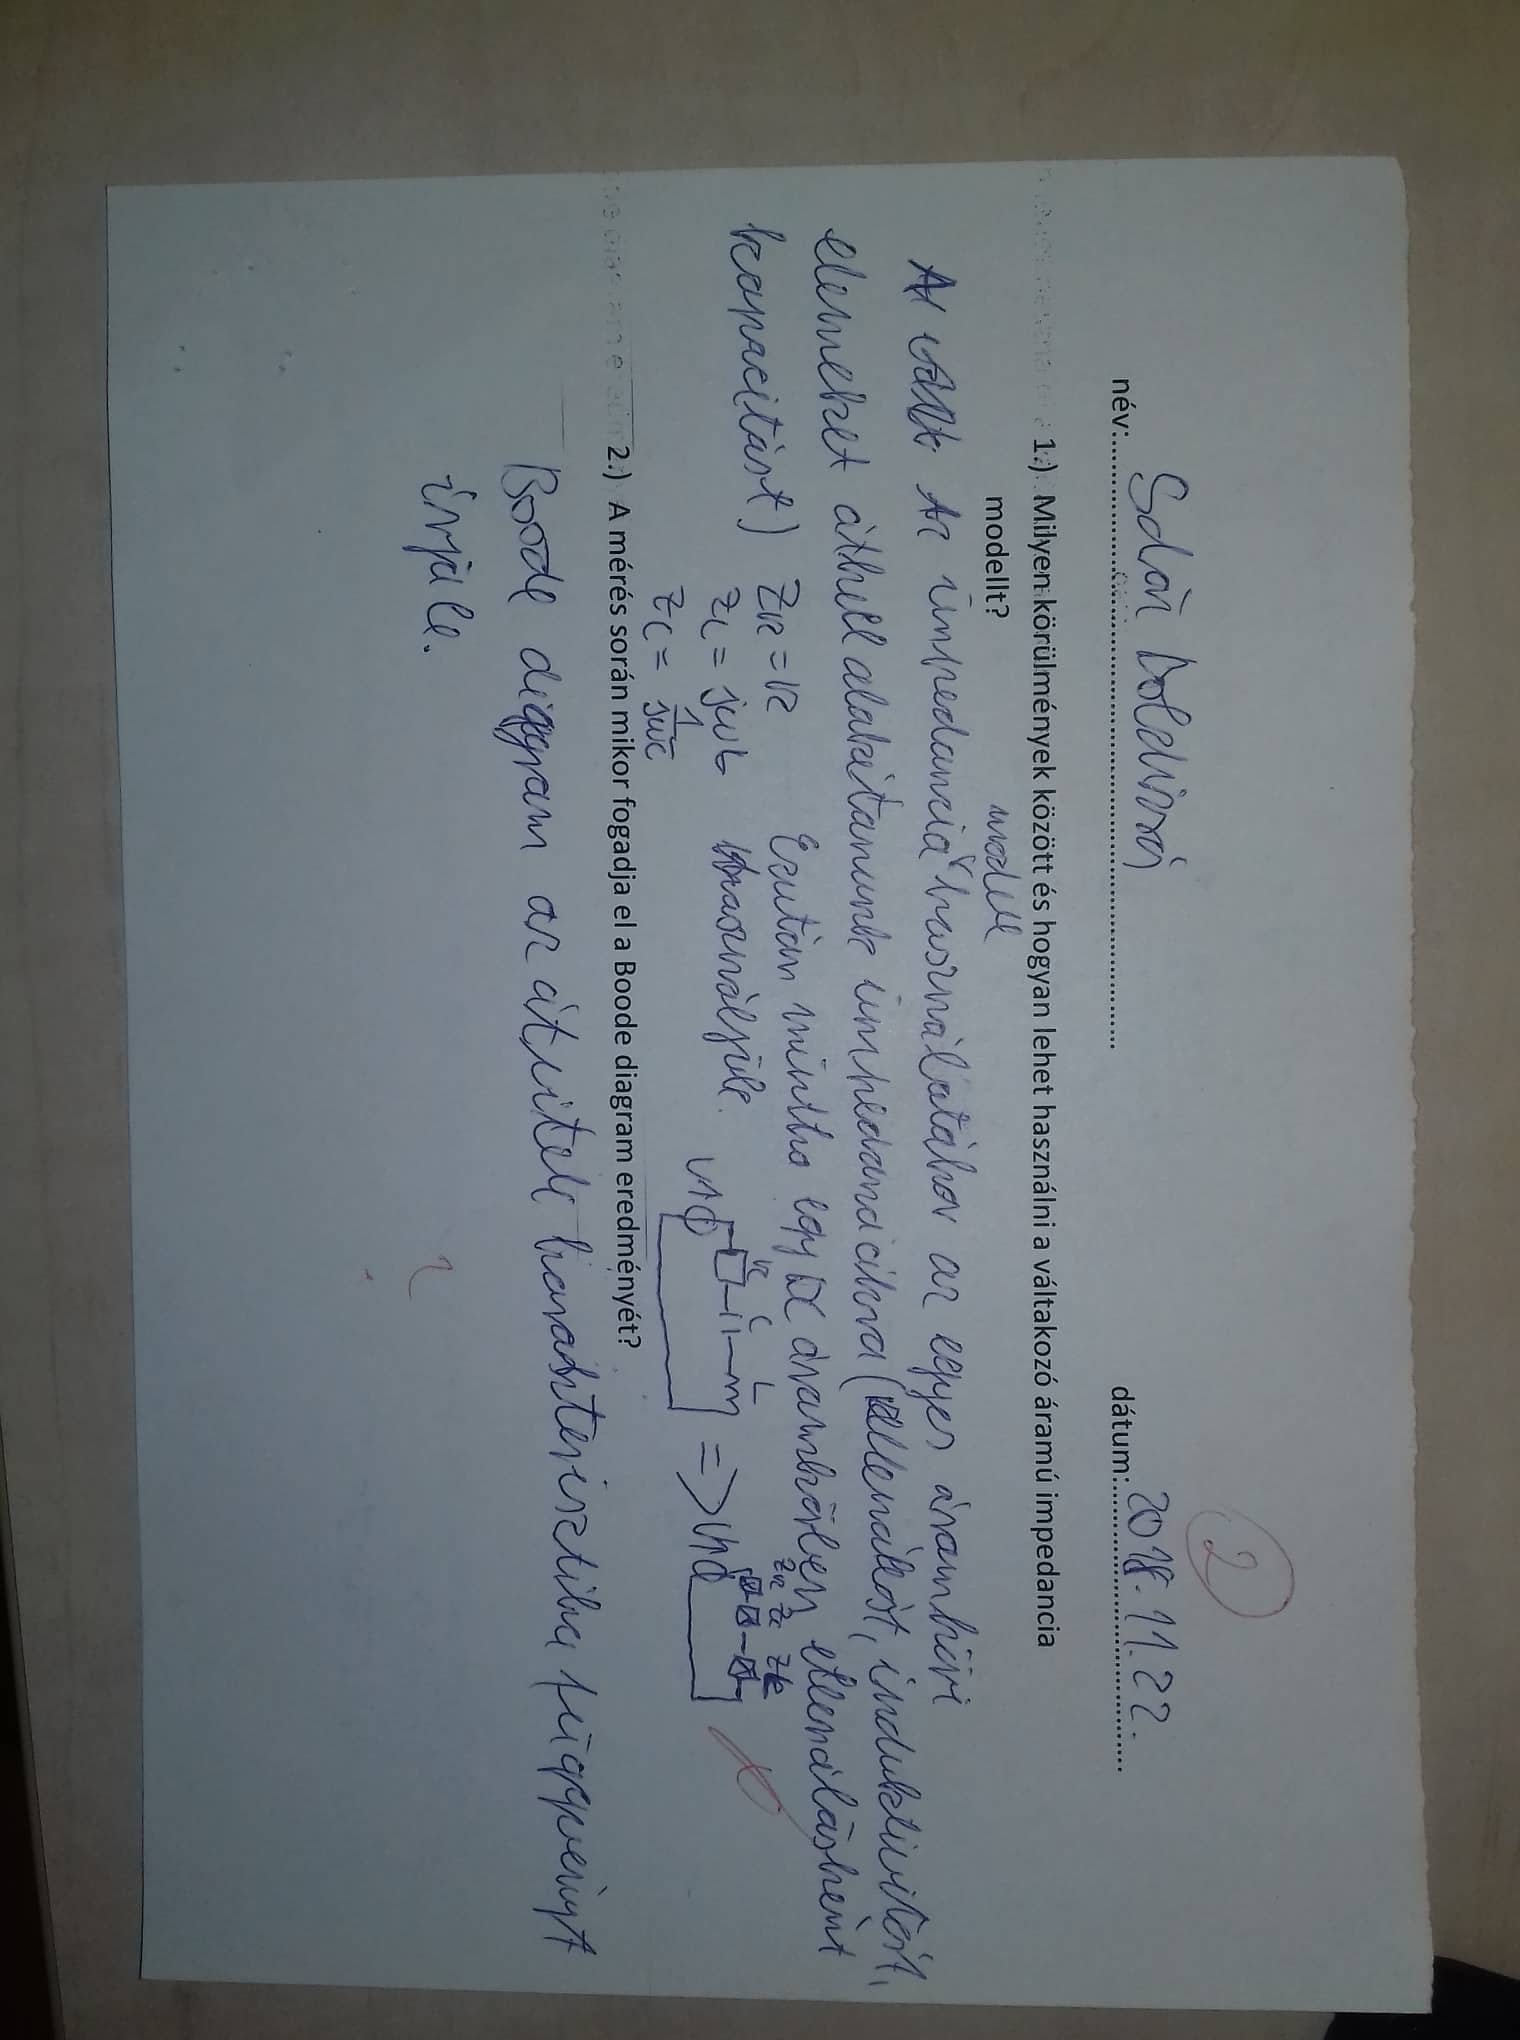 2
név: dátum: 2018.11.22.
1.) Milyen körülmények között és hogyan lehet használni a váltakozó áramú impedancia
modellt?
modell
Az impedancia használatához az egyes áramköri
elemeket át kell alakítanunk impedanciákra (ellenállást, induktivitást,
kapacitást) ZR = R Ezután mintha egy DC áramkörben ellenállásként
ZL = jωL használjuk.
ZC = 1/jωC
R C L
=>
2.) A mérés során mikor fogadja el a Boode diagram eredményét?
Boode diagram az átviteli karakterisztika függvényt
írja le.